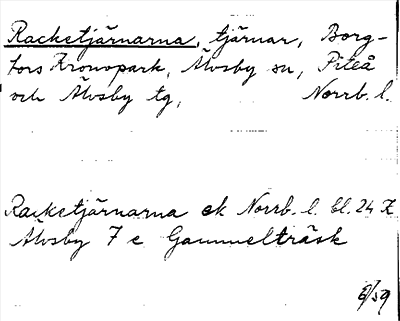 Racketjärnarna, tjärnar, Borg-
fors Kronopark, Älvsby sn, Piteå
och Älvsby tg, Norrb. l.
Racketjärnarna ek Norrb. l. bl. 24 K
Älvsby 7 c Gammelträsk
/59